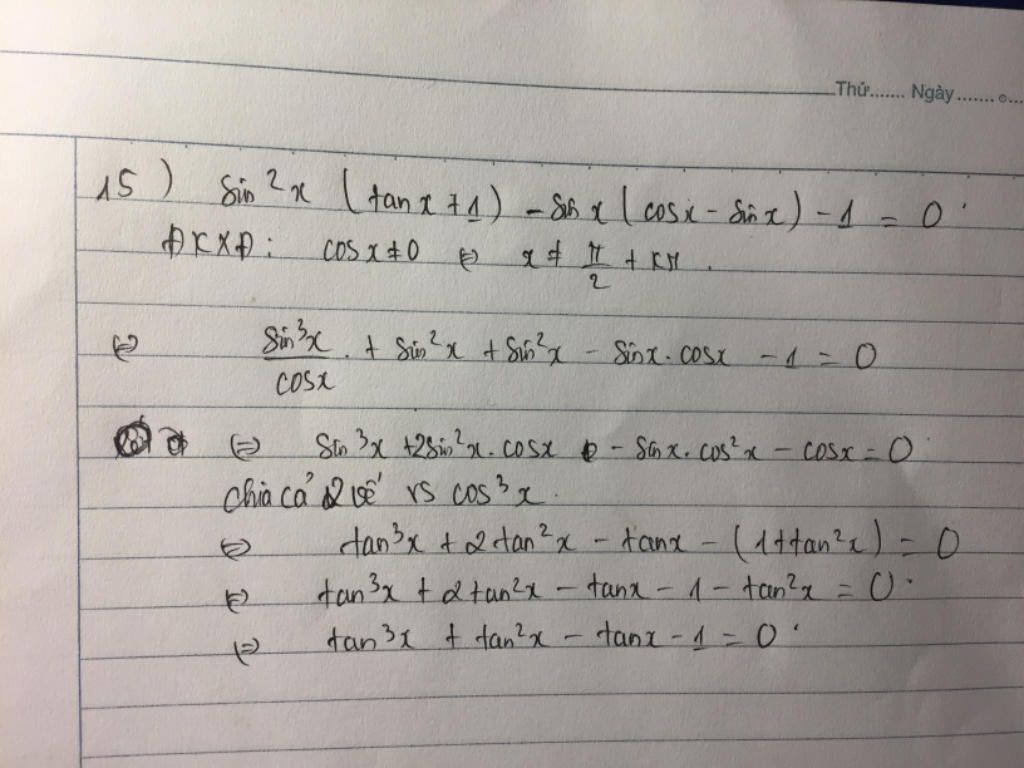 Thứ....... Ngày.......
15) sin²x (tanx + 1) - sin x (cosx - sinx) - 1 = 0
ĐKXĐ: cosx ≠ 0 ⇔ x ≠ π/2 + kπ.
⇔ sin³x/cosx + sin²x + sin²x - sinx.cosx - 1 = 0
⇔ sin³x + 2sin²x.cosx - sinx.cos²x - cosx = 0
chia cả 2 vế rs cos³x.
⇔ tan³x + 2tan²x - tanx - (1 + tan²x) = 0
⇔ tan³x + 2tan²x - tanx - 1 - tan²x = 0
⇔ tan³x + tan²x - tanx - 1 = 0